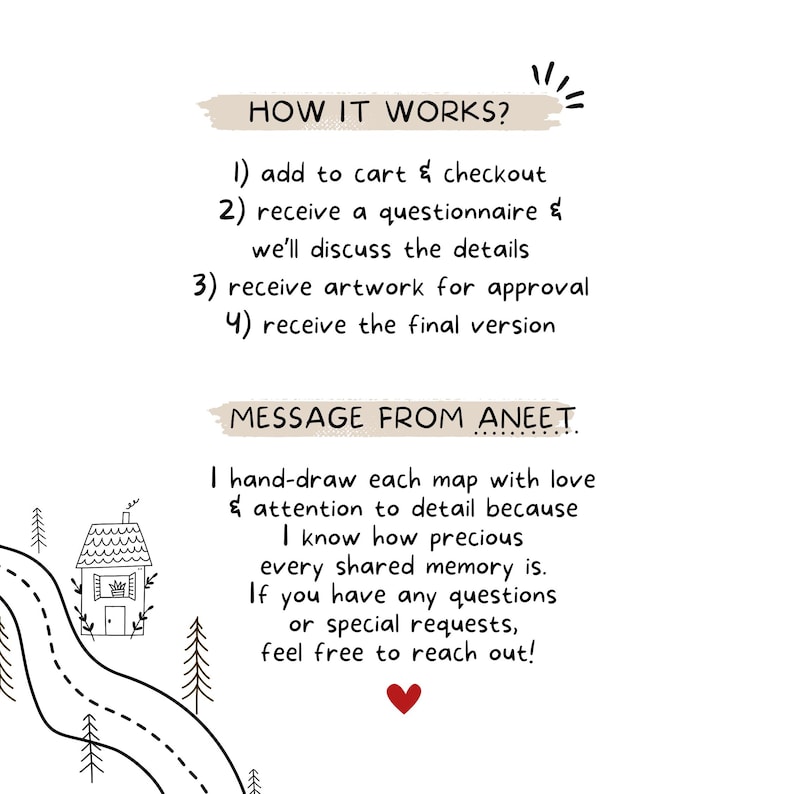 HOW IT WORKS?
1) add to cart & checkout
2) receive a questionnaire &
we'll discuss the details
3) receive artwork for approval
4) receive the final version
MESSAGE FROM ANEET
I hand-draw each map with love
& attention to detail because
I know how precious
every shared memory is.
If you have any questions
or special requests,
feel free to reach out!